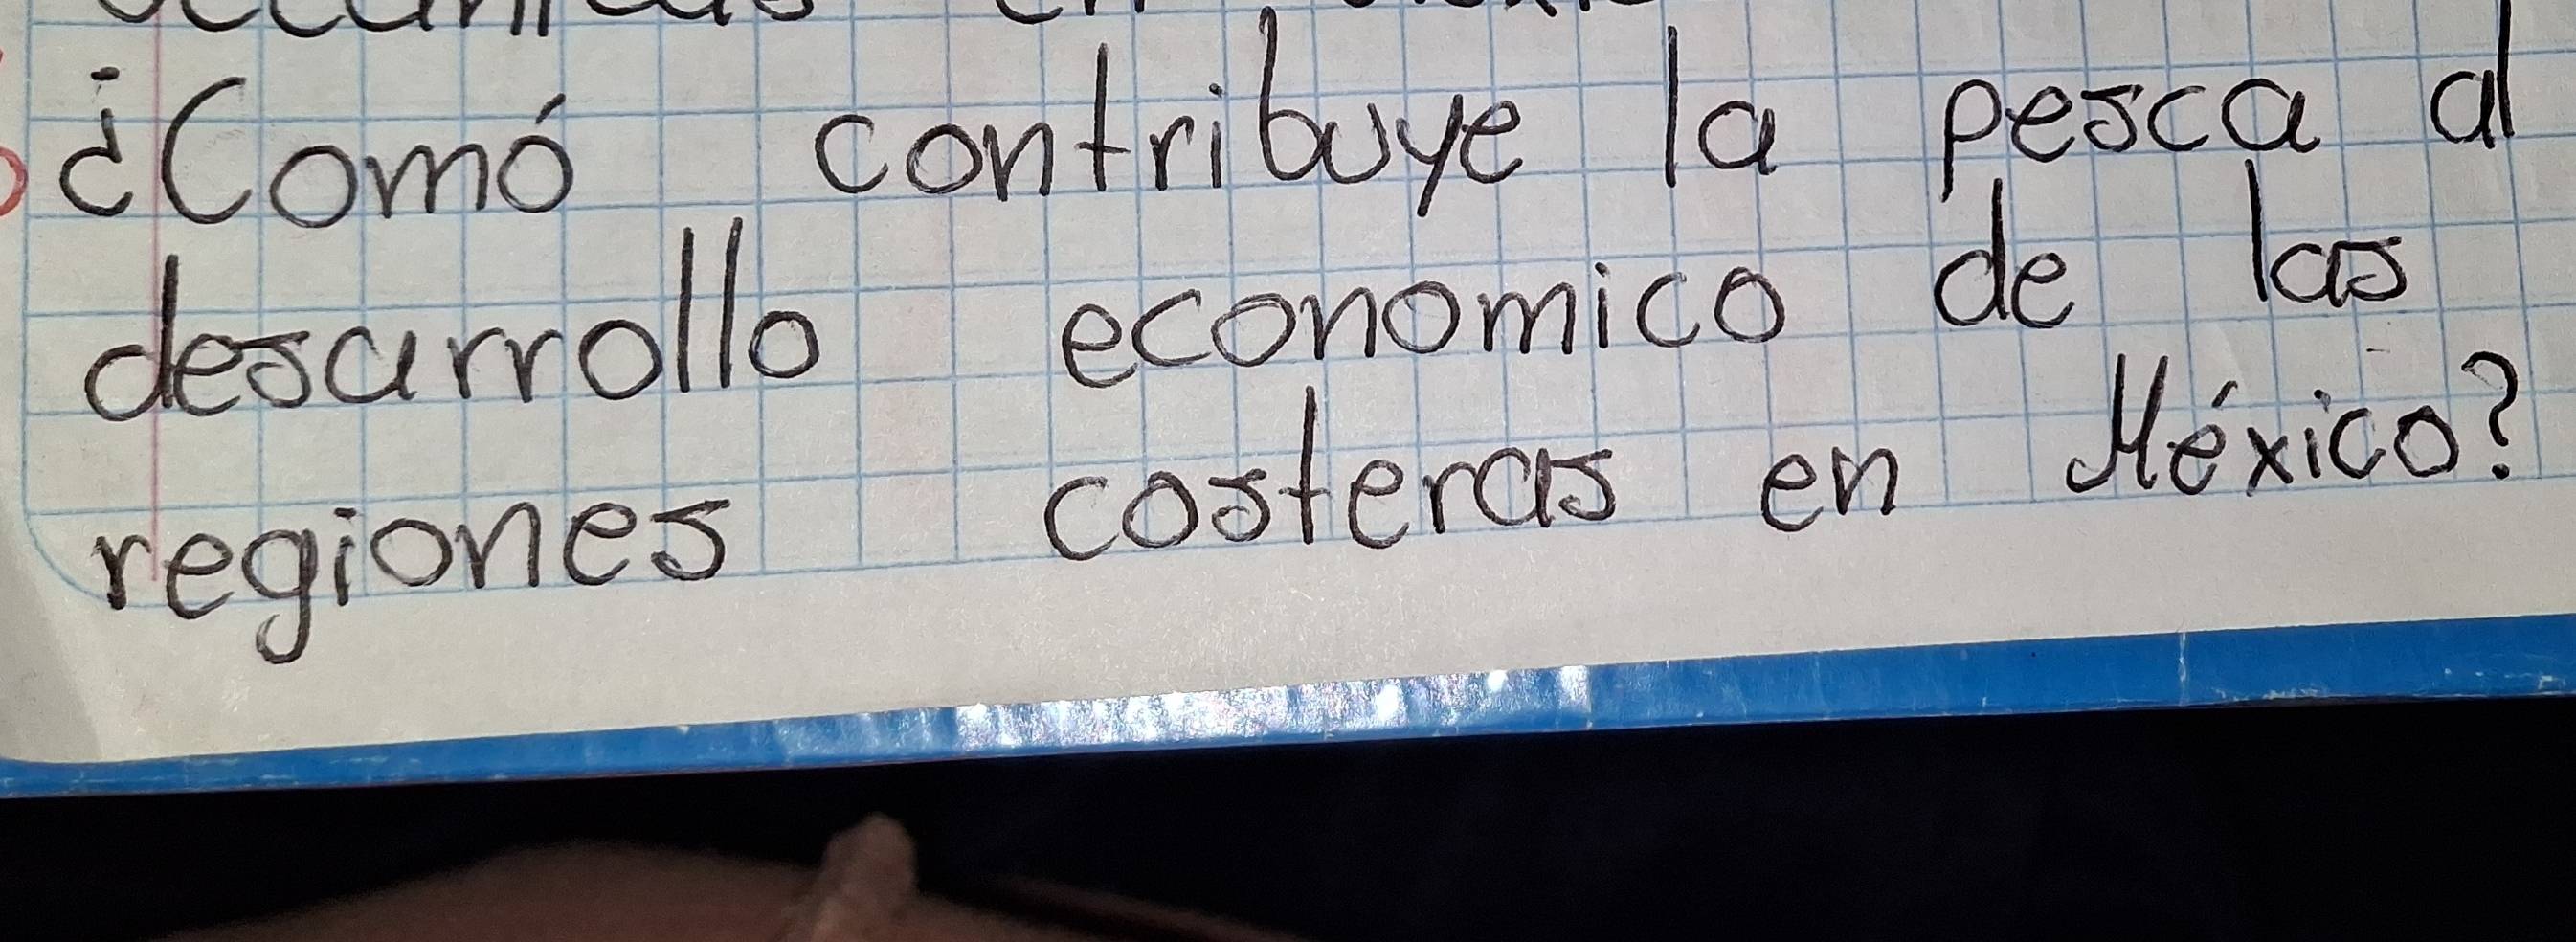 ¿Comó contribuye la pesca al
desarrollo economico de las
regiones costeras en México?